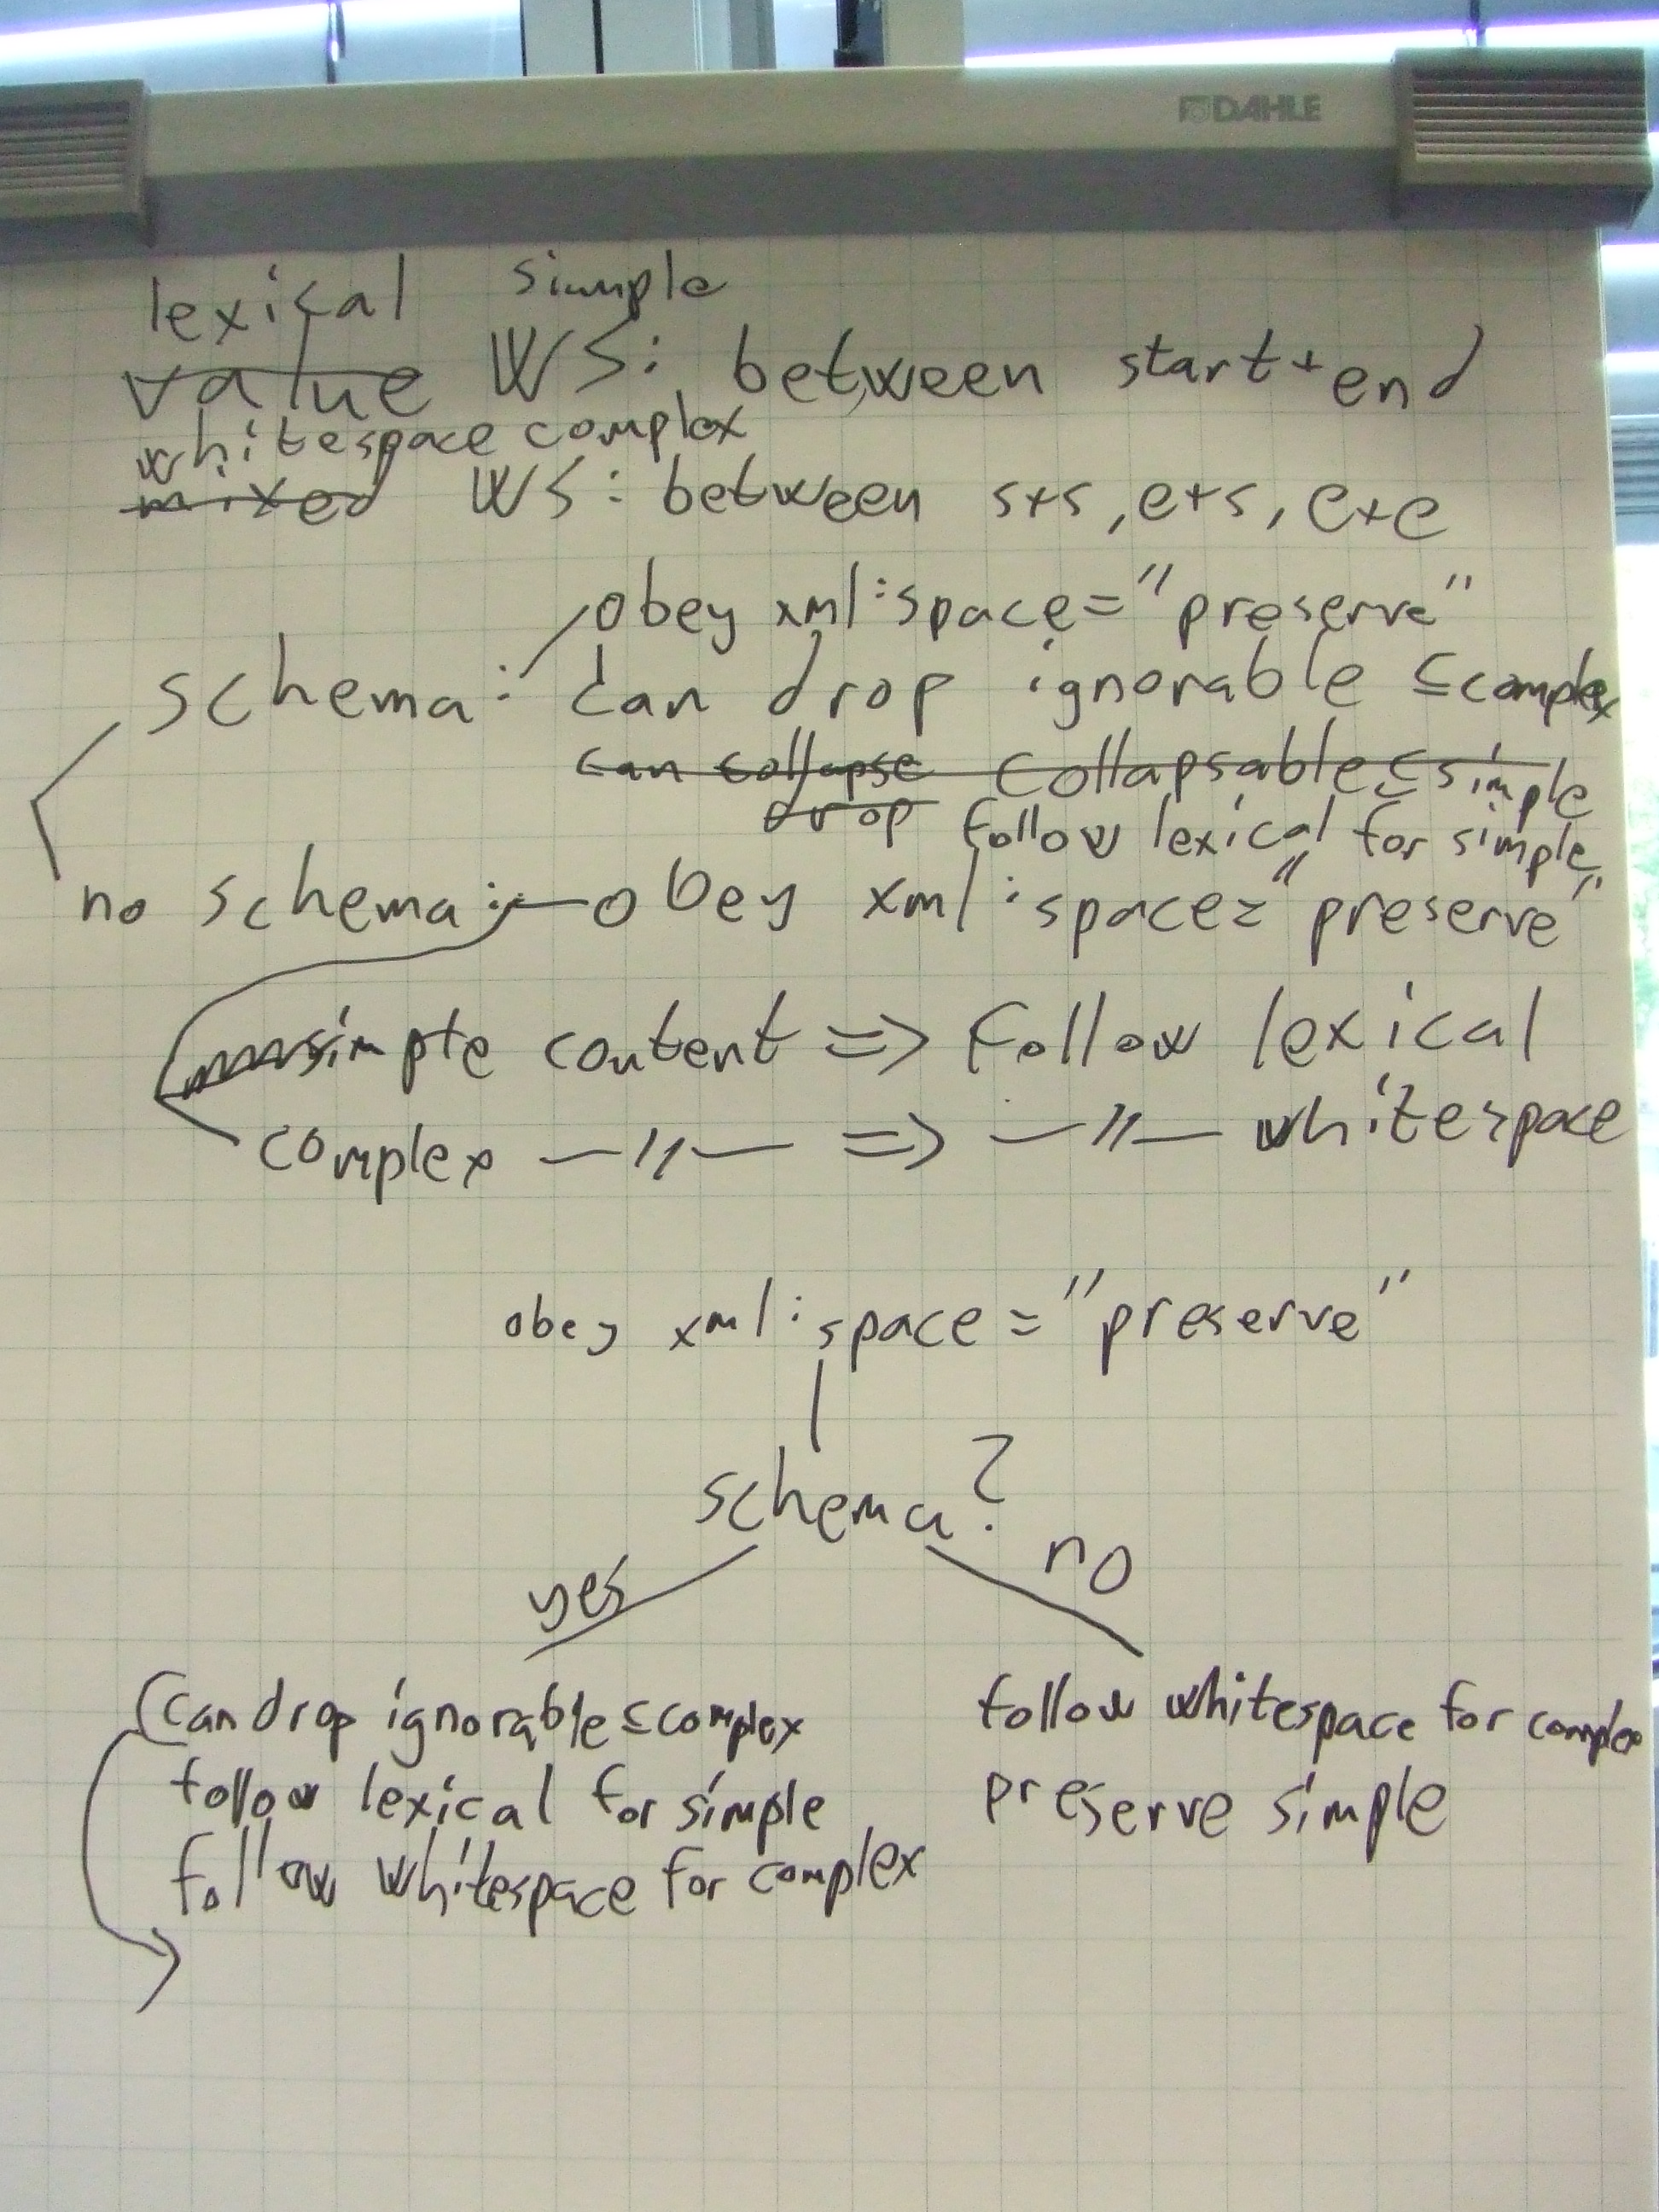 DAHLE
lexical simple
value WS: between start+end
whitespace complex
mixed WS: between s+s, e+s, e+e
obey xml:space="preserve"
schema: can drop ignorable ⊆ complex
can collapse collapsable ⊆ simple
drop follow lexical for simple
no schema: obey xml:space="preserve"
simple content => follow lexical
complex —〃— => —〃— whitespace
obey xml:space="preserve"
schema?
yes no
can drop ignorable ⊆ complex
follow lexical for simple
follow whitespace for complex
follow whitespace for complex
preserve simple